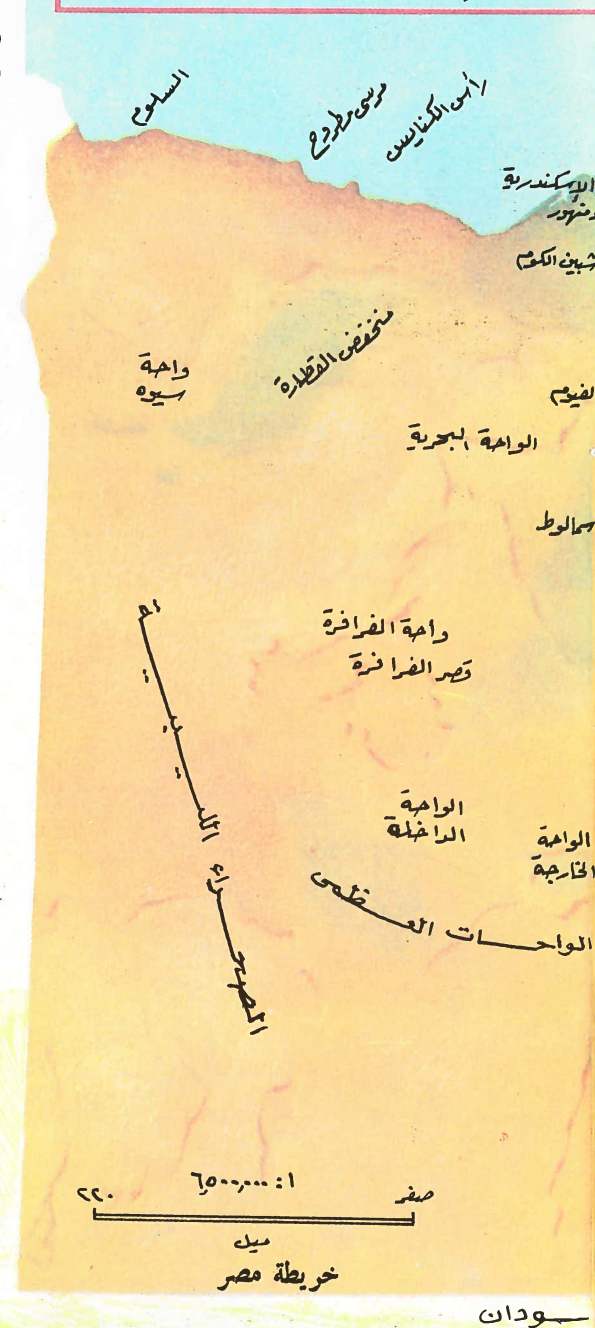 السلوم
مرسى مطروح
رأس الكنايس
الإسكندرية
دمنهور
شبين الكوم
منخفض القطارة
واحة
سيوه
لفيوم
الواحة البحرية
سمالوط
واحة الفرافرة
قصر الفرافرة
الصحراء الليبية
الواحة
الداخلة
الواحة
الخارجة
الواحات العظمى
٦,٥٠٠,٠٠٠ : ١
صفر
٢٢٠
ميل
خريطة مصر
سودان